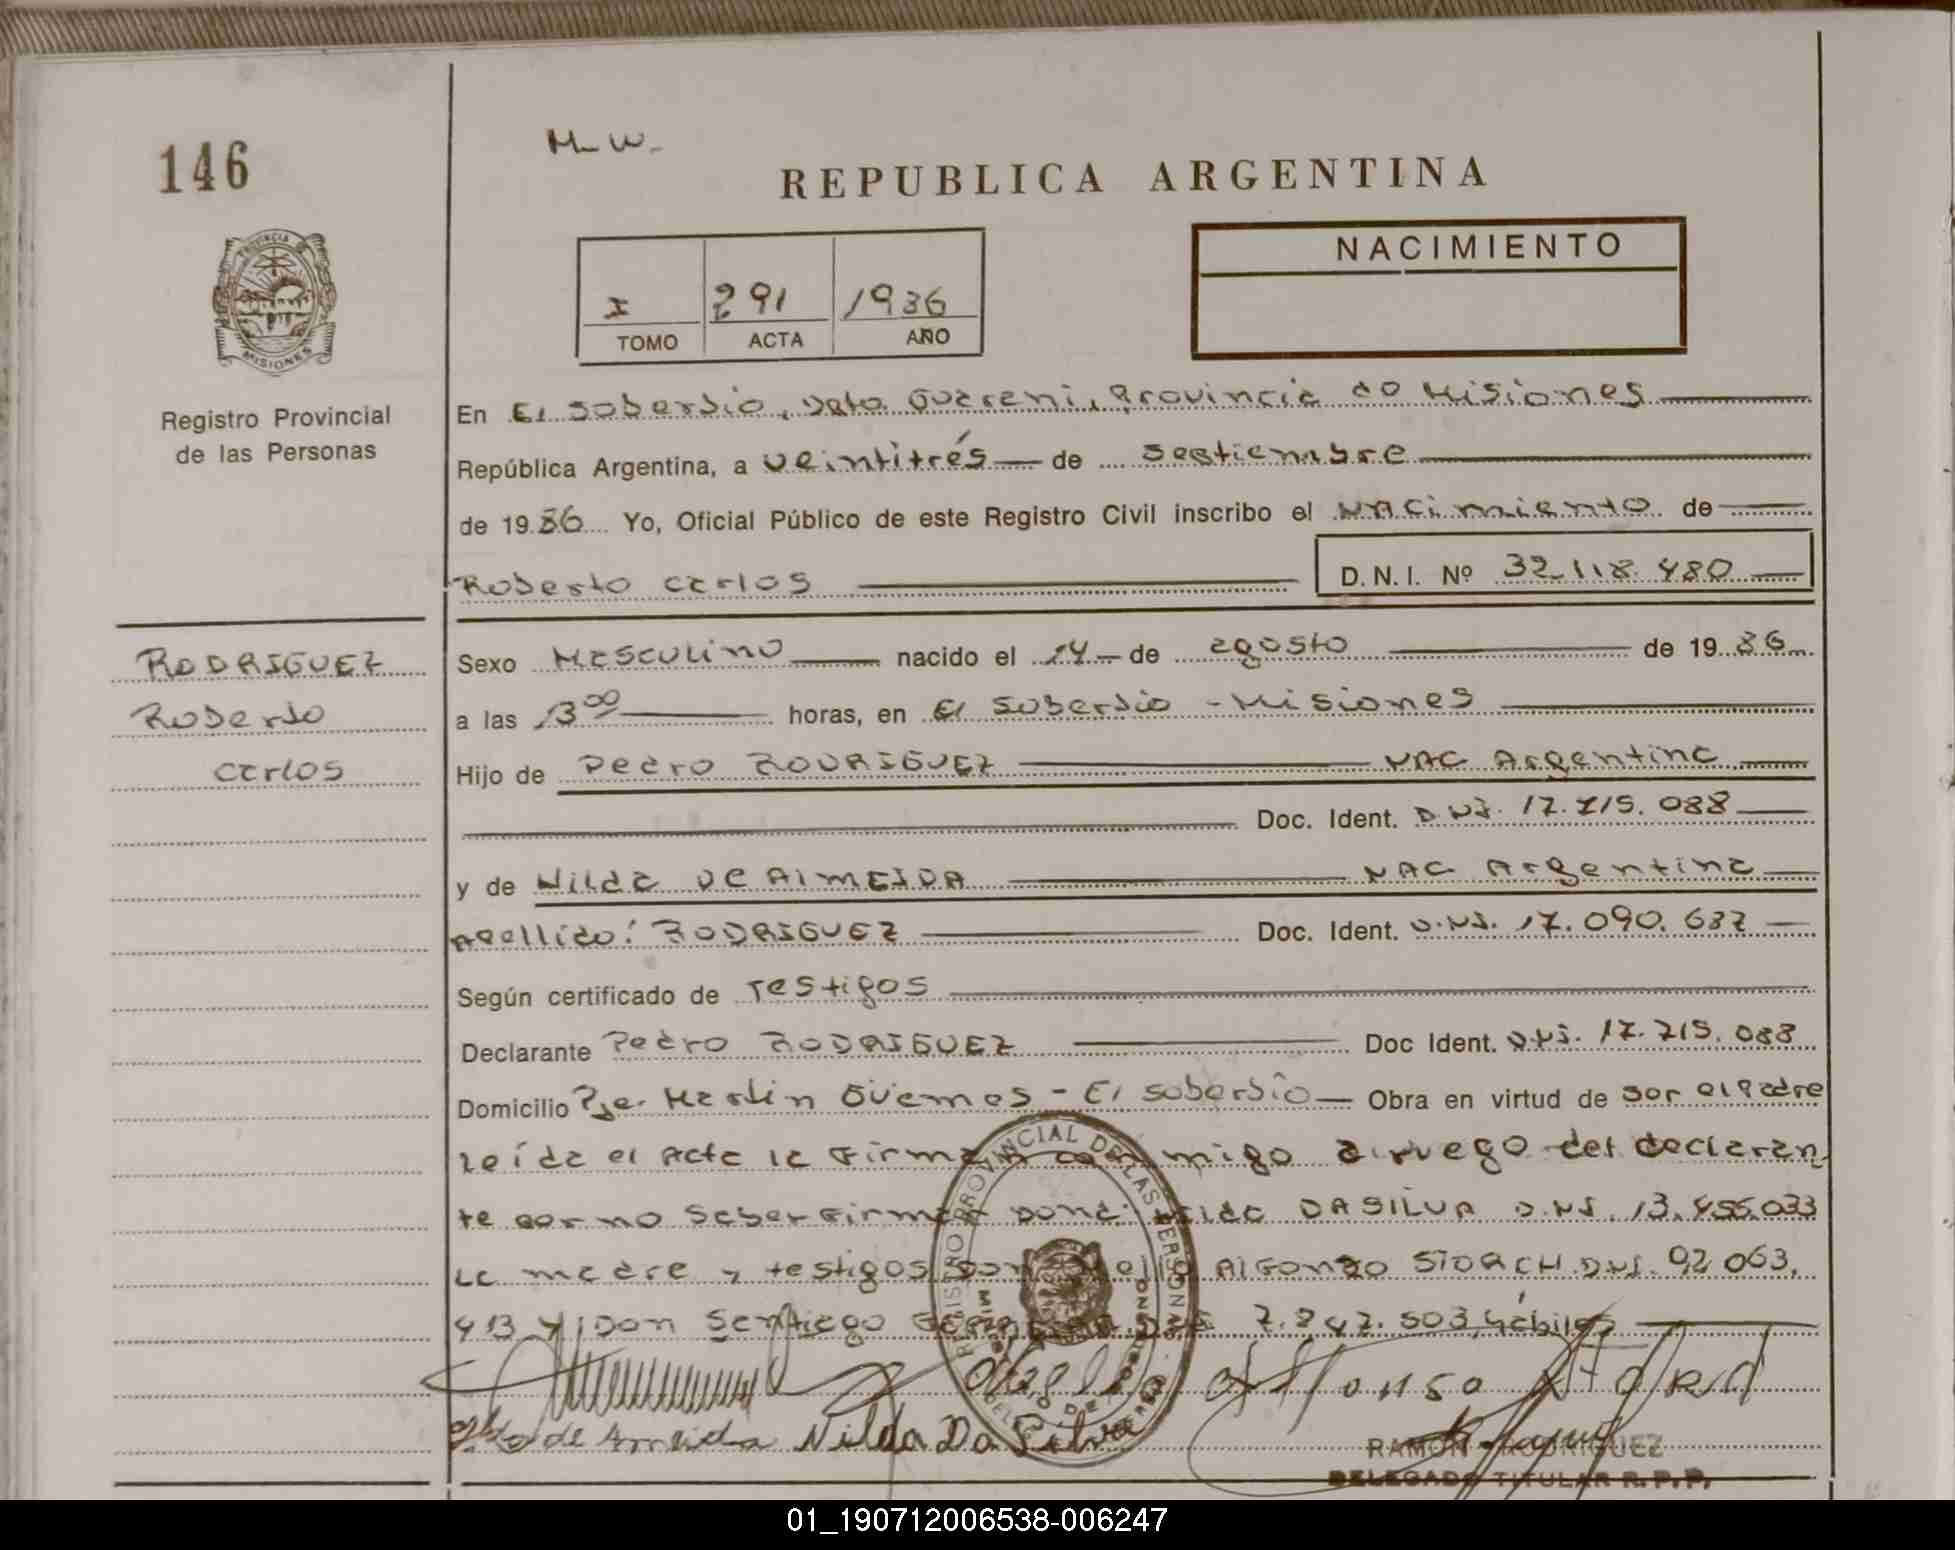 146
M. W.
REPUBLICA ARGENTINA
PROVINCIA DE
MISIONES
I 291 1986
TOMO ACTA AÑO
NACIMIENTO
Registro Provincial
de las Personas
En El Soberbio, Dpto Guarani, Provincia de Misiones
República Argentina, a veintitrés de septiembre
de 19 86 Yo, Oficial Público de este Registro Civil inscribo el nacimiento de
Roberto Carlos D.N.I. Nº 32.118.480
RODRIGUEZ
Roberto
Carlos
Sexo Masculino nacido el 14 de agosto de 19 86
a las 13 00 horas, en El Soberbio - Misiones
Hijo de Pedro RODRIGUEZ NAC Argentina
Doc. Ident. DNI. 17.215.088
y de Nilda DE ALMEIDA NAC Argentina
apellido: RODRIGUEZ Doc. Ident. DNI. 17.090.637
Según certificado de Testigos
Declarante Pedro RODRIGUEZ Doc Ident. DNI. 17.215.088
Domicilio Pje. Martin Güemes - El Soberbio Obra en virtud de ser el Padre
Leída el Acta la firma conmigo a ruego del declaran
te por no saber firmar Doña DA SILVA DNI. 13.455.033
la madre y testigos Don ALFONZO STORCH DNI. 92.063.
413 y Don Santiago 7.847.503, hábiles
REGISTRO PROVINCIAL DE LAS PERSONAS
Alfonso Storch
de Almeida Nilda Da Silva
RAMON RODRIGUEZ
DELEGADO TITULAR R.P.P.
01_190712006538-006247